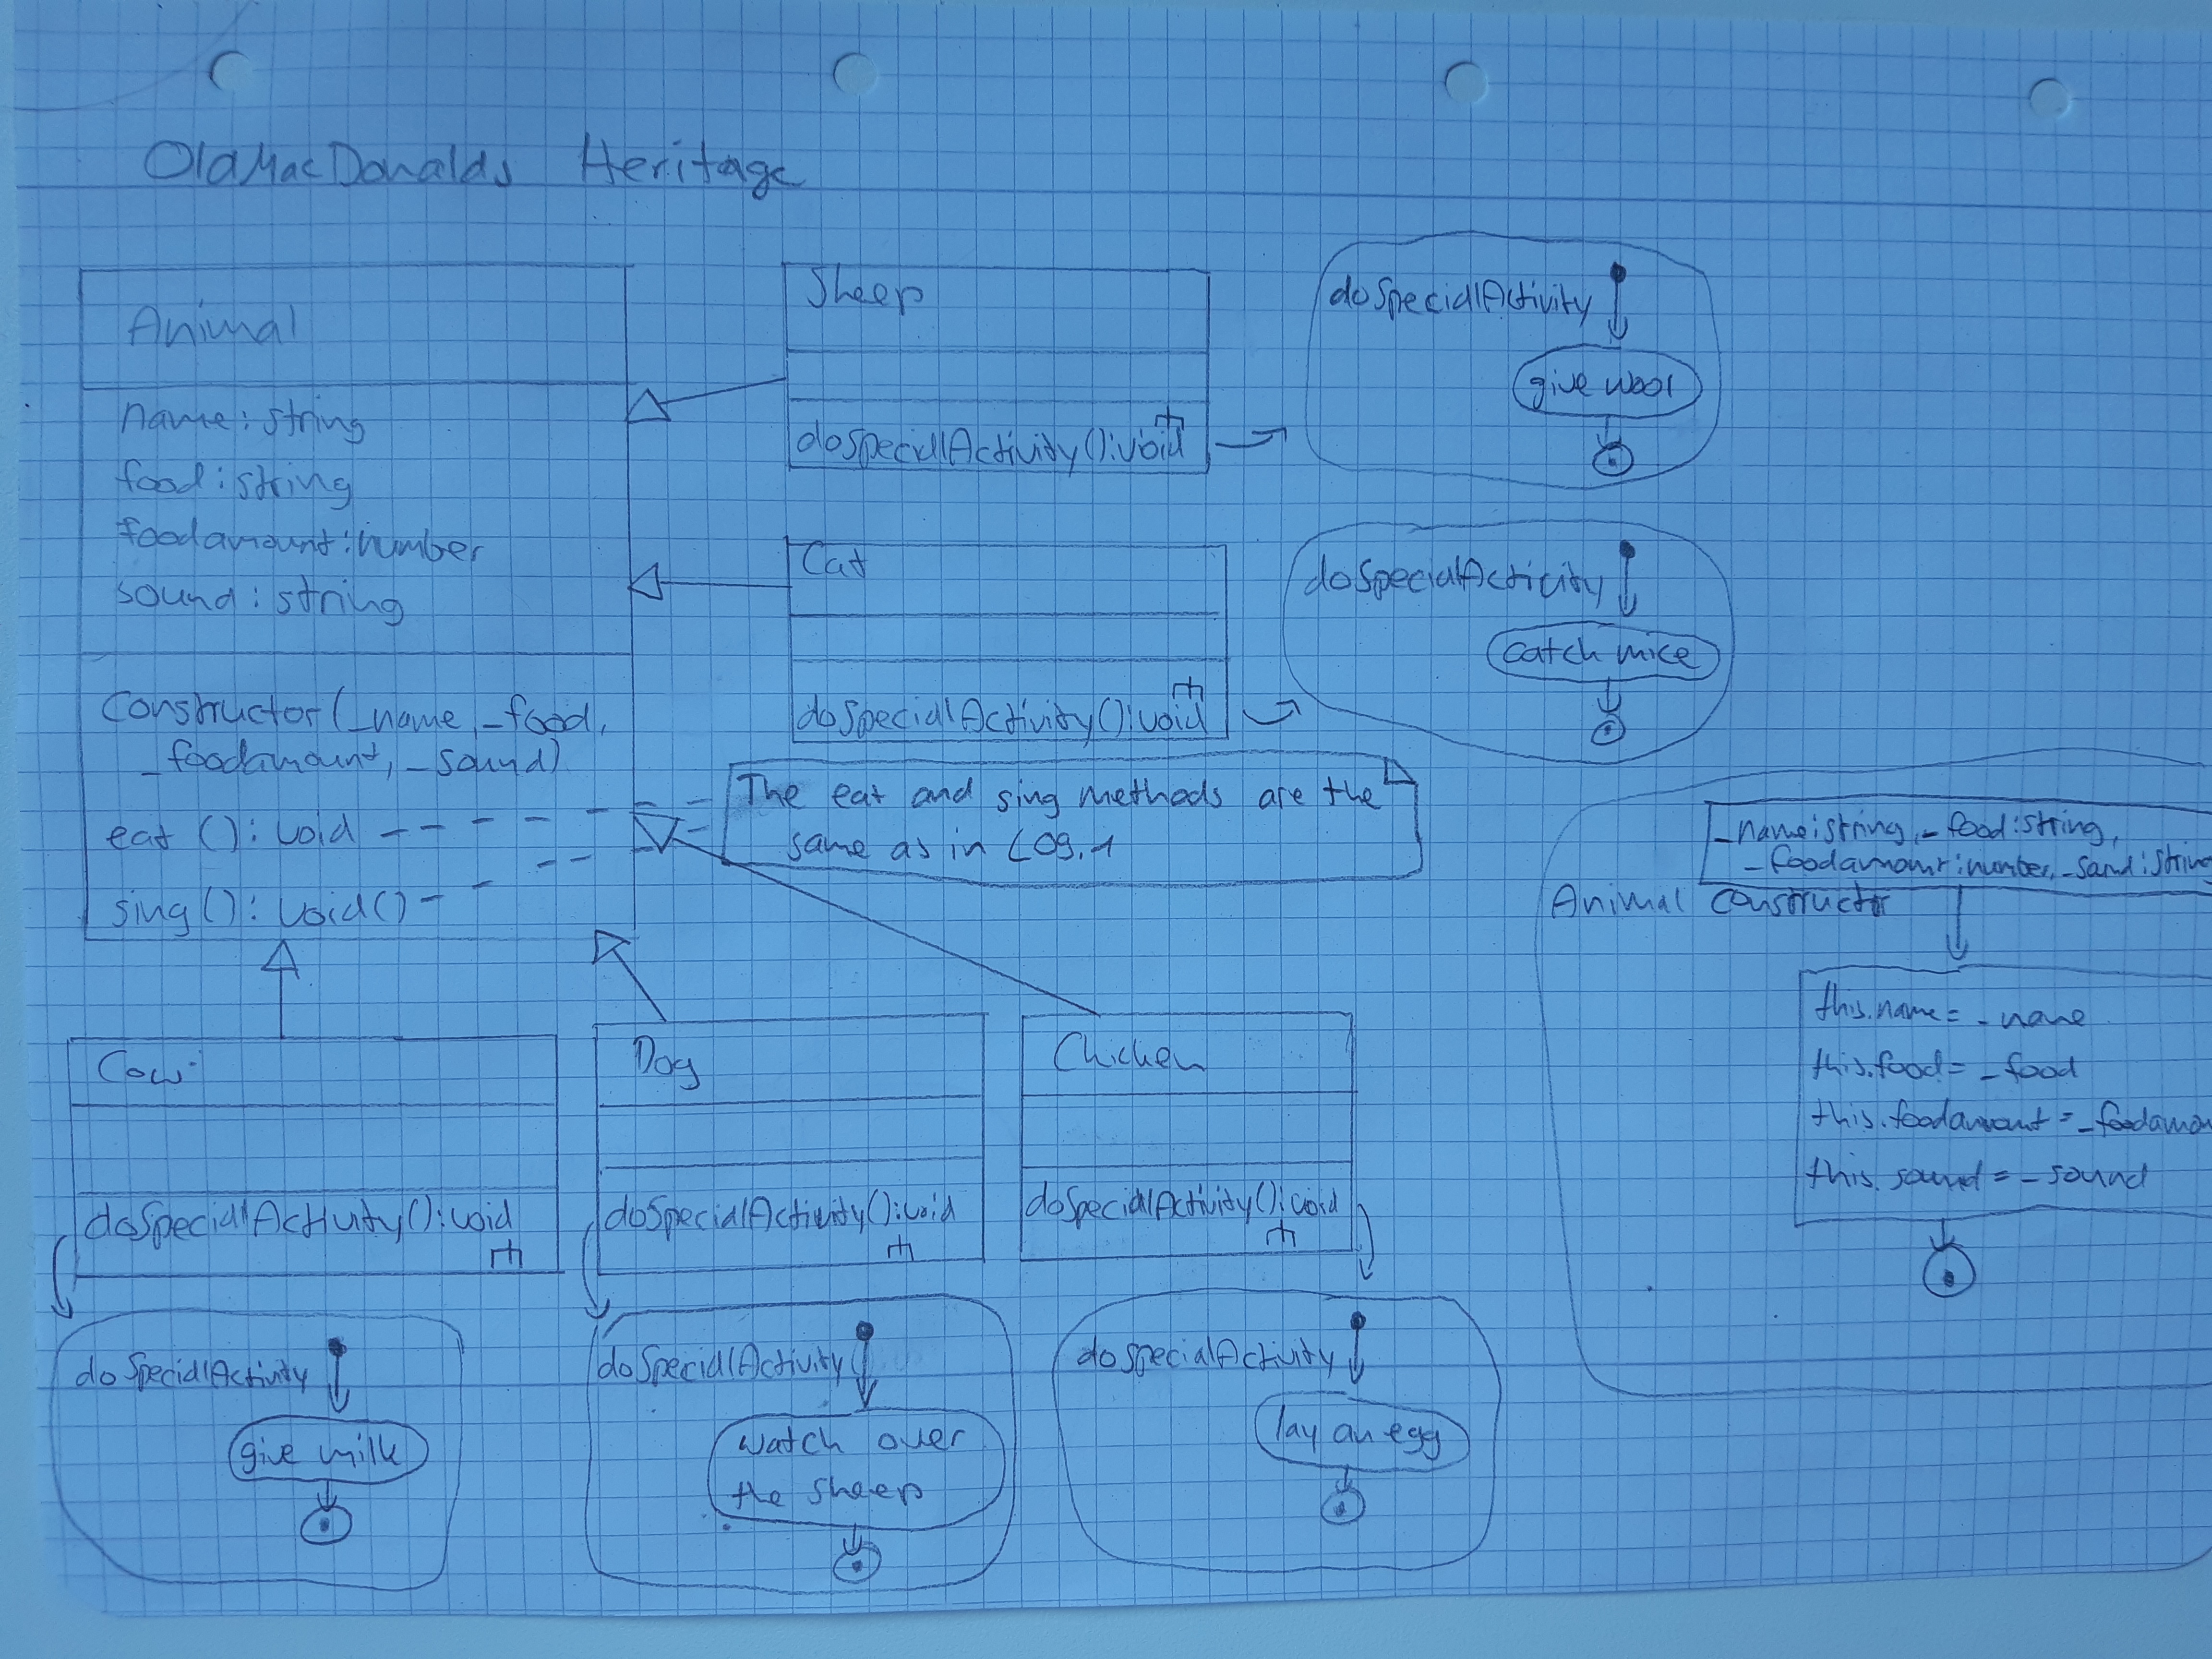 OldMacDonalds Heritage
Animal
name: string
food: string
foodamount: number
sound: string
Constructor(_name, _food,
_foodamount, _sound)
eat (): void
sing(): void()
Sheep
doSpecialActivity(): void
doSpecialActivity
give wool
Cat
doSpecialActivity(): void
doSpecialActivity
catch mice
The eat and sing methods are the
same as in L09.1
_name: string, _food: string,
_foodamount: number, _sound: string
Animal Constructor
this.name = _name
this.food = _food
this.foodamount = _foodamou
this.sound = _sound
Cow
doSpecialActivity(): void
doSpecialActivity
give milk
Dog
doSpecialActivity(): void
doSpecialActivity
watch over
the sheep
Chicken
doSpecialActivity(): void
doSpecialActivity
lay an egg